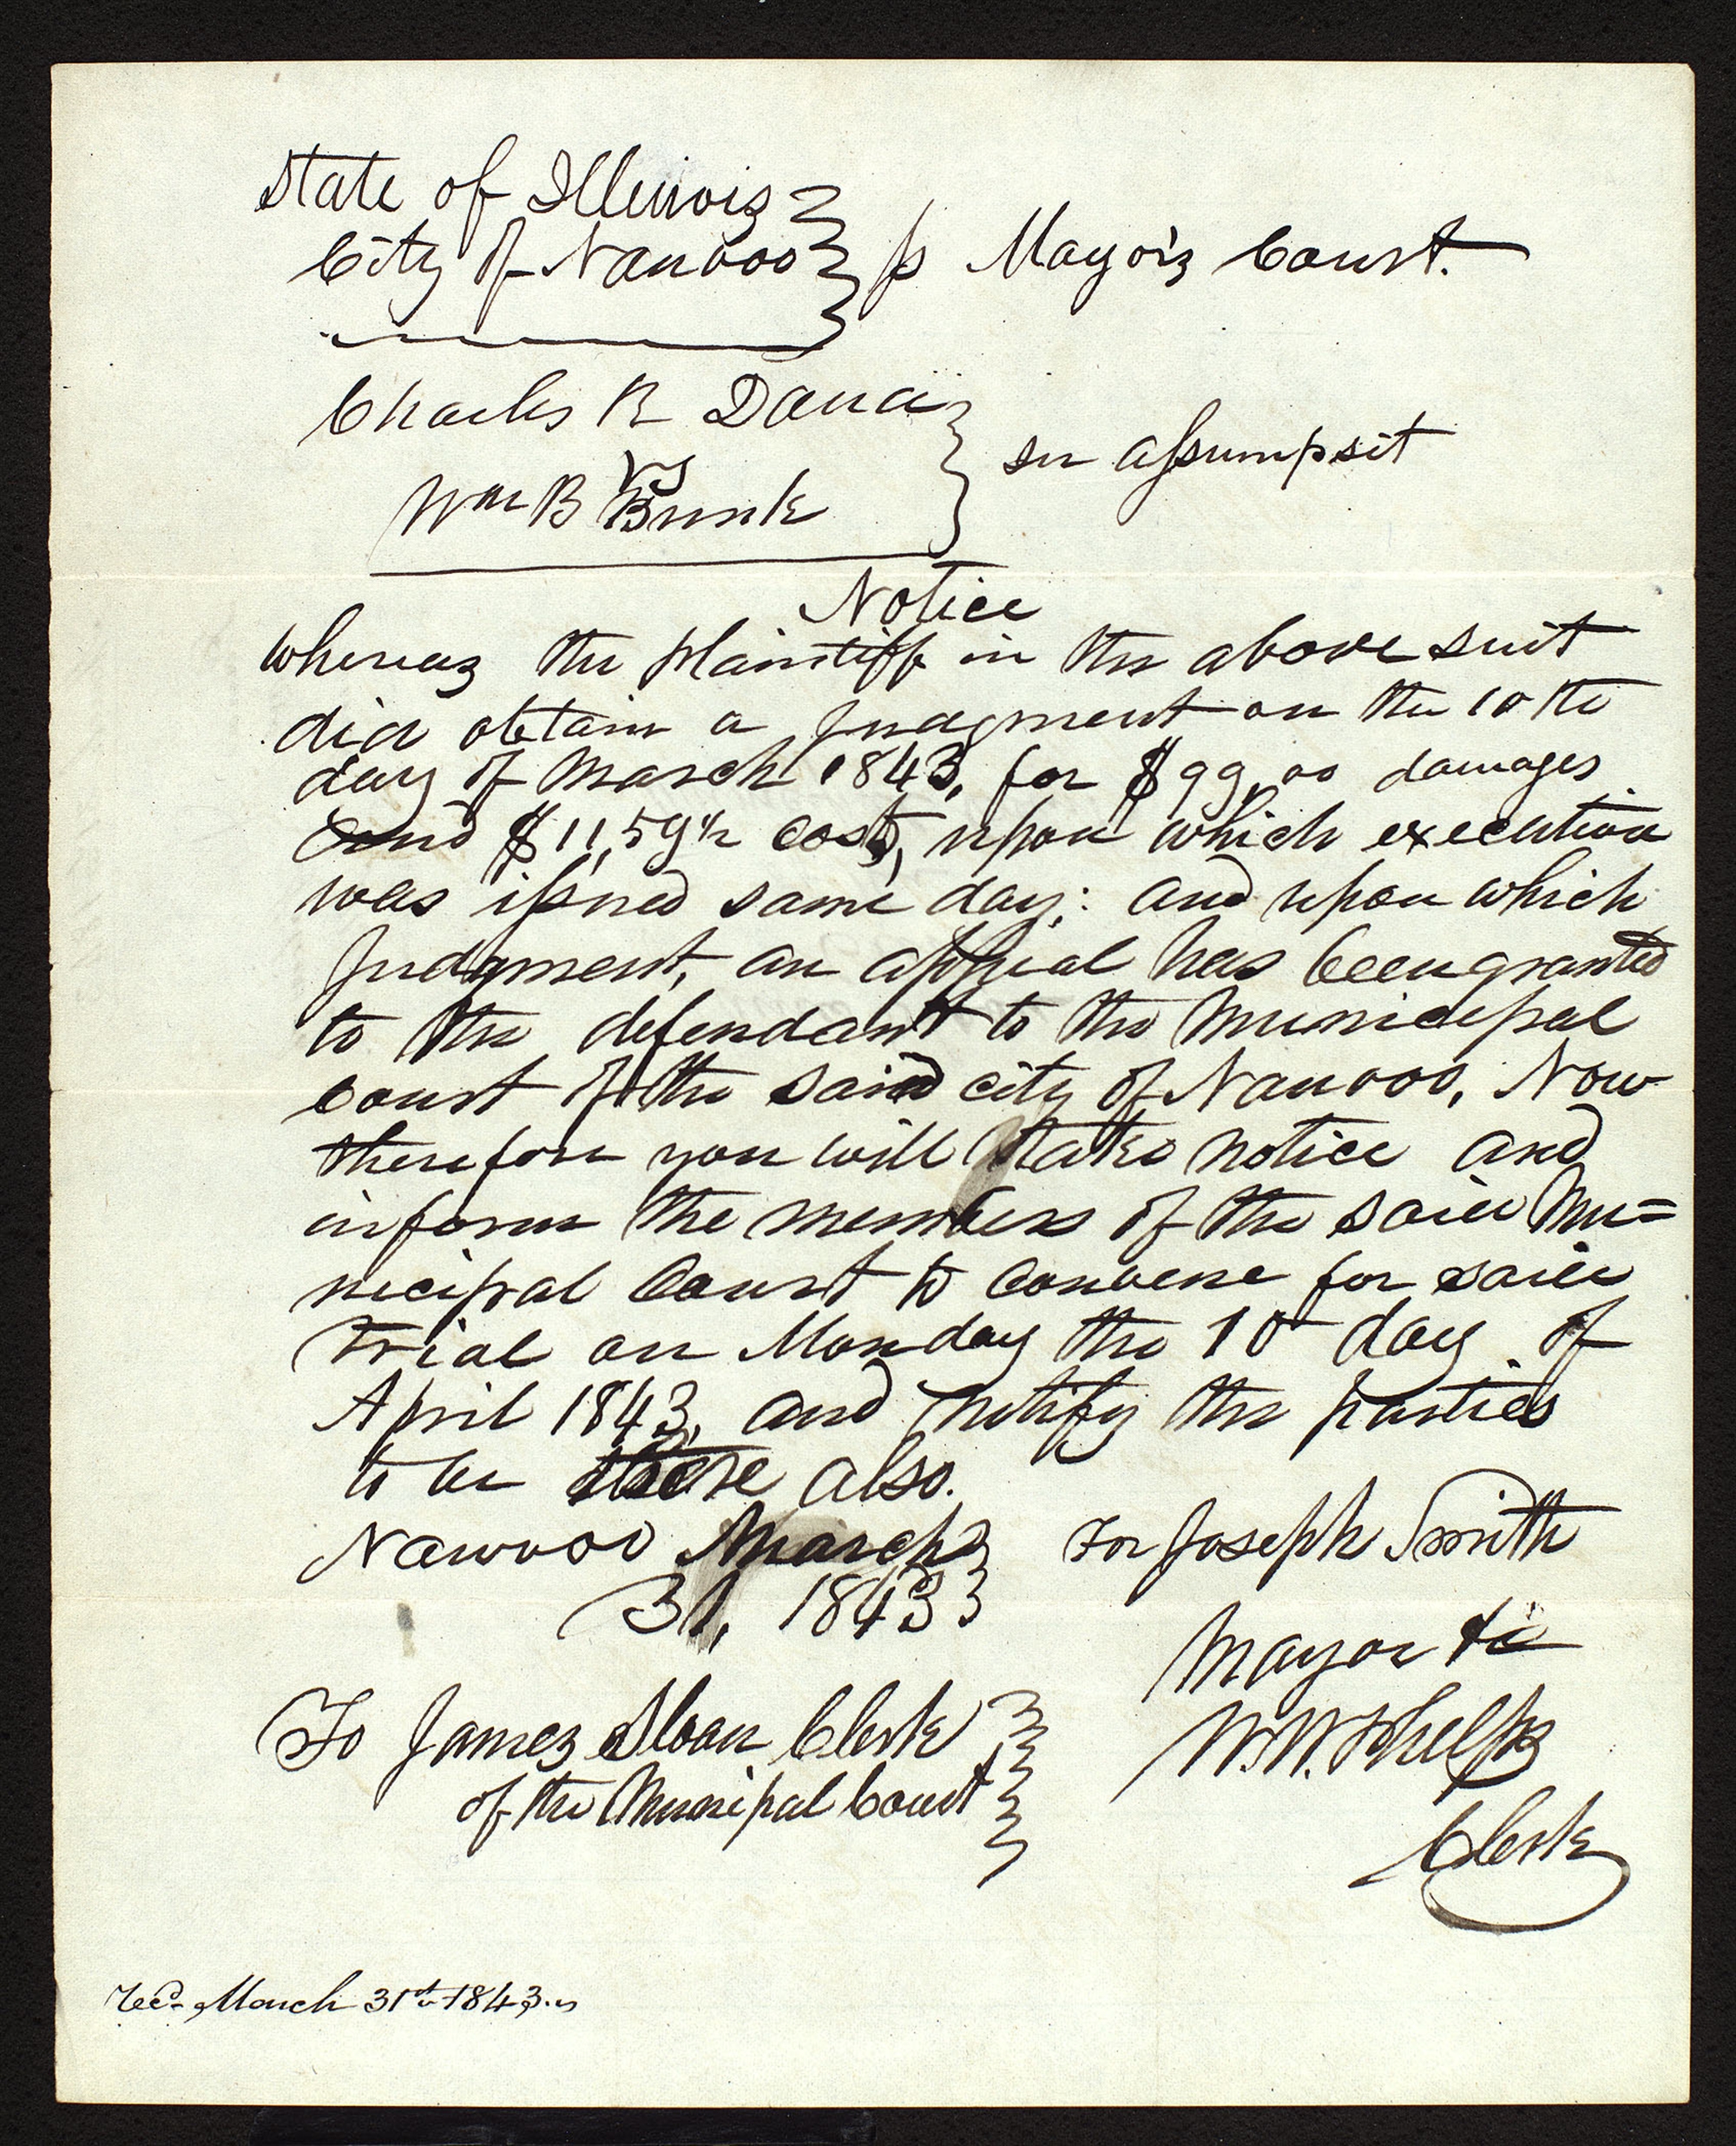 State of Illinois
City of Nauvoo } ss Mayor's Court.
Charles R Dana
vs } In assumpsit
Wm B Brink
Notice
whereas the plaintiff in the above suit
did obtain a judgment on the 10th
day of March 1843, for $99,00 damages
and $11,59½ cost, upon which execution
was issued same day: and upon which
judgment, an appeal has been granted
to the defendant to the Municipal
Court of the said city of Nauvoo, Now
therefore you will take notice and
inform the members of the said Mu=
nicipal Court to convene for said
trial on Monday the 10 day of
April 1843, and notify the parties
to be there also.
Nauvoo March } For Joseph Smith
31, 1843 }
Mayor &c
W. W. Phelps
Clerk
To James Sloan Clerk
of the Municipal Court
Recd. March 31st 1843.